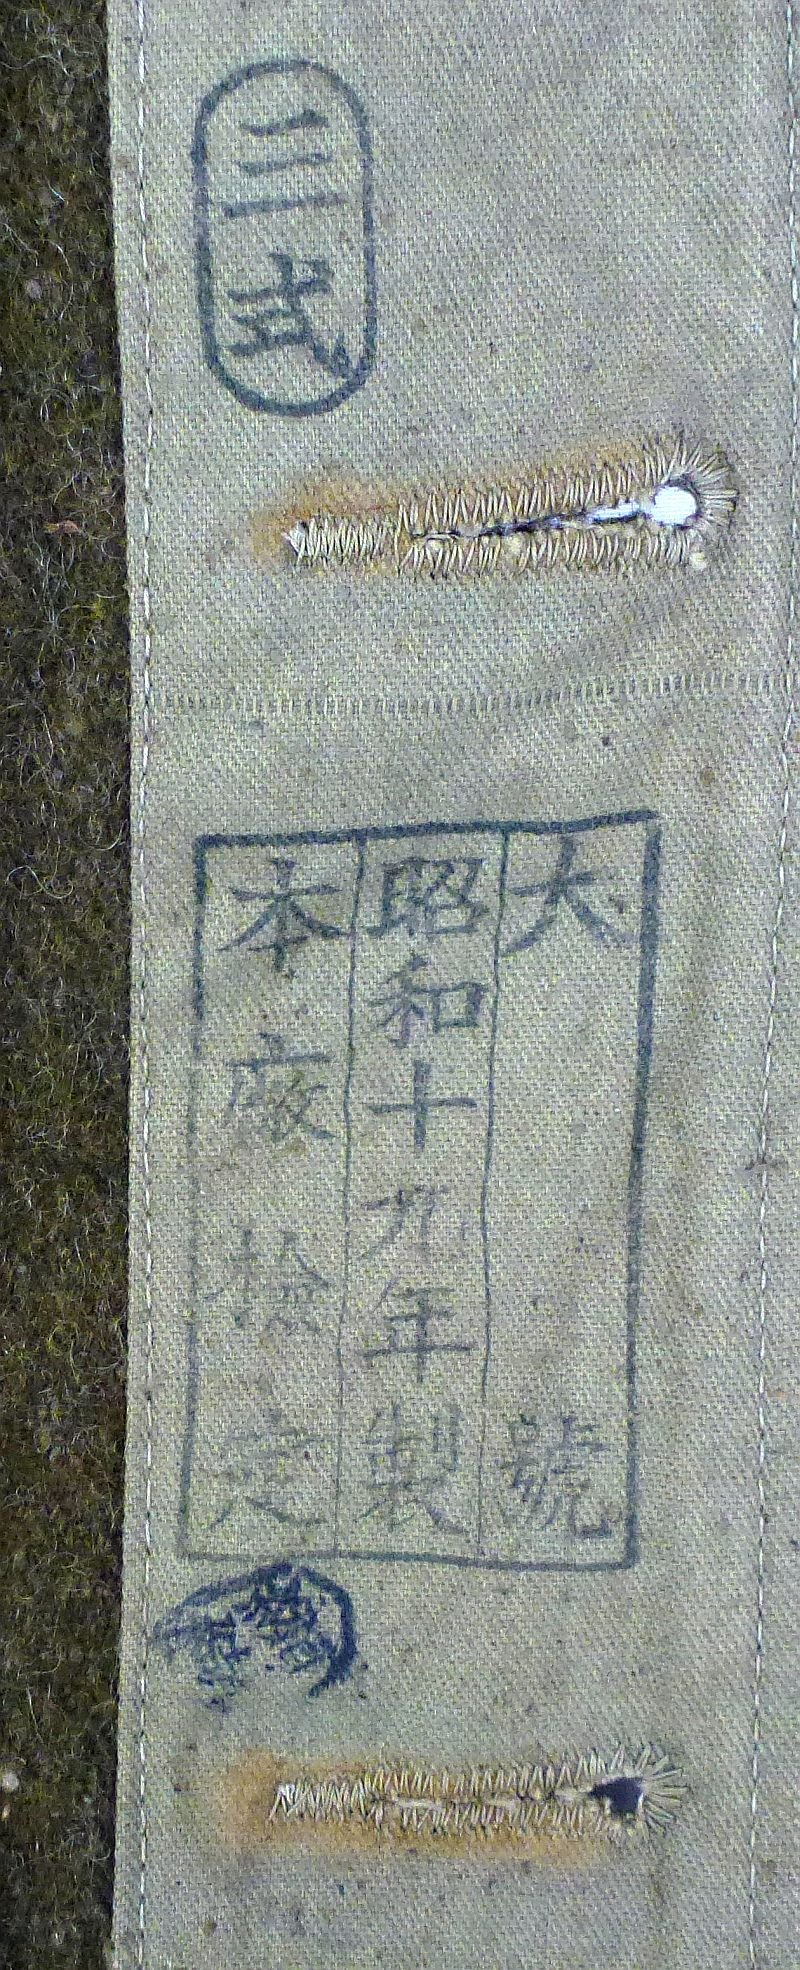 三式
大　號
昭和十九年製
本廠檢定